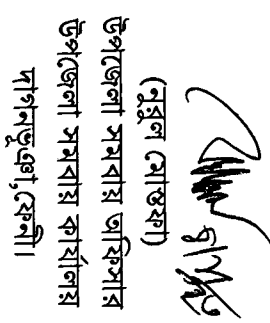 (নুরুল মোস্তফা)
উপজেলা সমবায় অফিসার
উপজেলা সমবায় কার্যালয়
দাগনভূঞা, ফেনী।